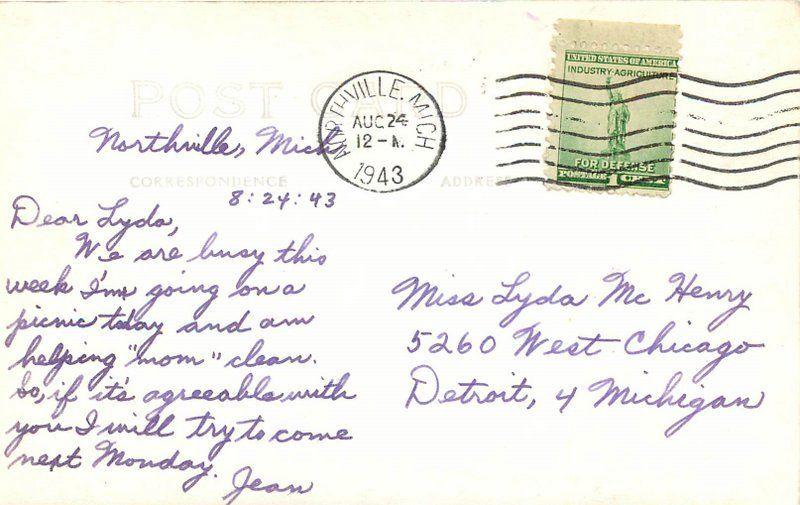 POST CARD
NORTHVILLE, MICH
AUG 24
12-M.
1943
UNITED STATES OF AMERICA
INDUSTRY·AGRICULTURE
FOR DEFENSE
POSTAGE 1 CENT
Northville, Mich
CORRESPONDENCE
ADDRESS
8:24:43
Dear Lyda,
We are busy this
week I'm going on a
picnic today and am
helping "mom" clean.
So, if it's agreeable with
you I will try to come
next Monday.
Jean
Miss Lyda Mc Henry
5260 West Chicago
Detroit, 4 Michigan